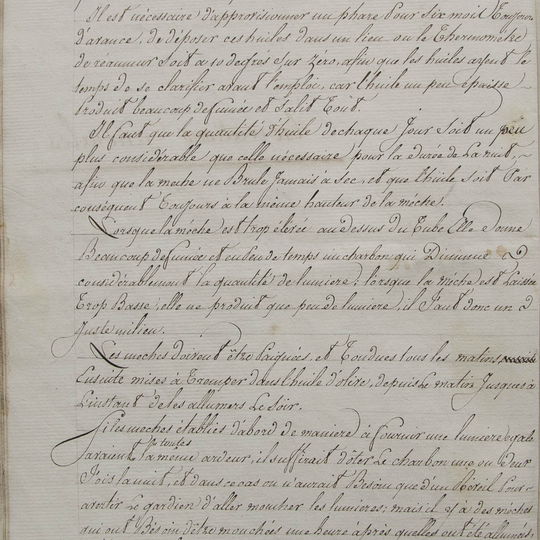 Il est nécessaire d'approvisionner un phare pour six mois Toujours
d'avance, de déposer ces huiles dans un lieu ou le Thermometre
de reaumur soit a 10 degrés sur Zéro, afin que les huiles ayent le
temps de se clarifier avant l'emploi, car l'huile un peu épaisse
Produit beaucoup de fumée et salit Tout.
Il faut que la quantité d'huile de chaque Jour soit un peu
plus considérable que celle nécessaire pour la durée de La nuit,
afin que la meche ne Brule Jamais à sec, et que l'huile soit Par
conséquent Toujours à la même hauteur de la méche.
Lorsque la méche est trop élévée au dessus du Tube Elle donne
Beaucoup de fumée et en peu de temps un charbon qui Diminue
considérablement la quantité de lumiere; lorsque la méche est Laissée
Trop Basse, elle ne produit que peu de lumiere, il Faut donc un
Juste milieu.
Les meches doivent être Paignés, et Tondues tous les matins,
Ensuite mises à Tremper dans l'huile d'olive, depuis Le matin Jusques à
L'instant de les allumers Le soir.
Si les meches établies d'abord de maniere à fournir une lumiere egale
avaient toutes la même ardeur, il suffirait d'ôter Le charbon une ou deux
Fois la nuit, et dans ce cas on n'aurait Besoin que d'un Réveil Pour
avertir Le gardien d'aller moucher les lumieres; mais il y a des méches
qui ont Besoin d'être mouchées une heure après quelles ont été allumés,